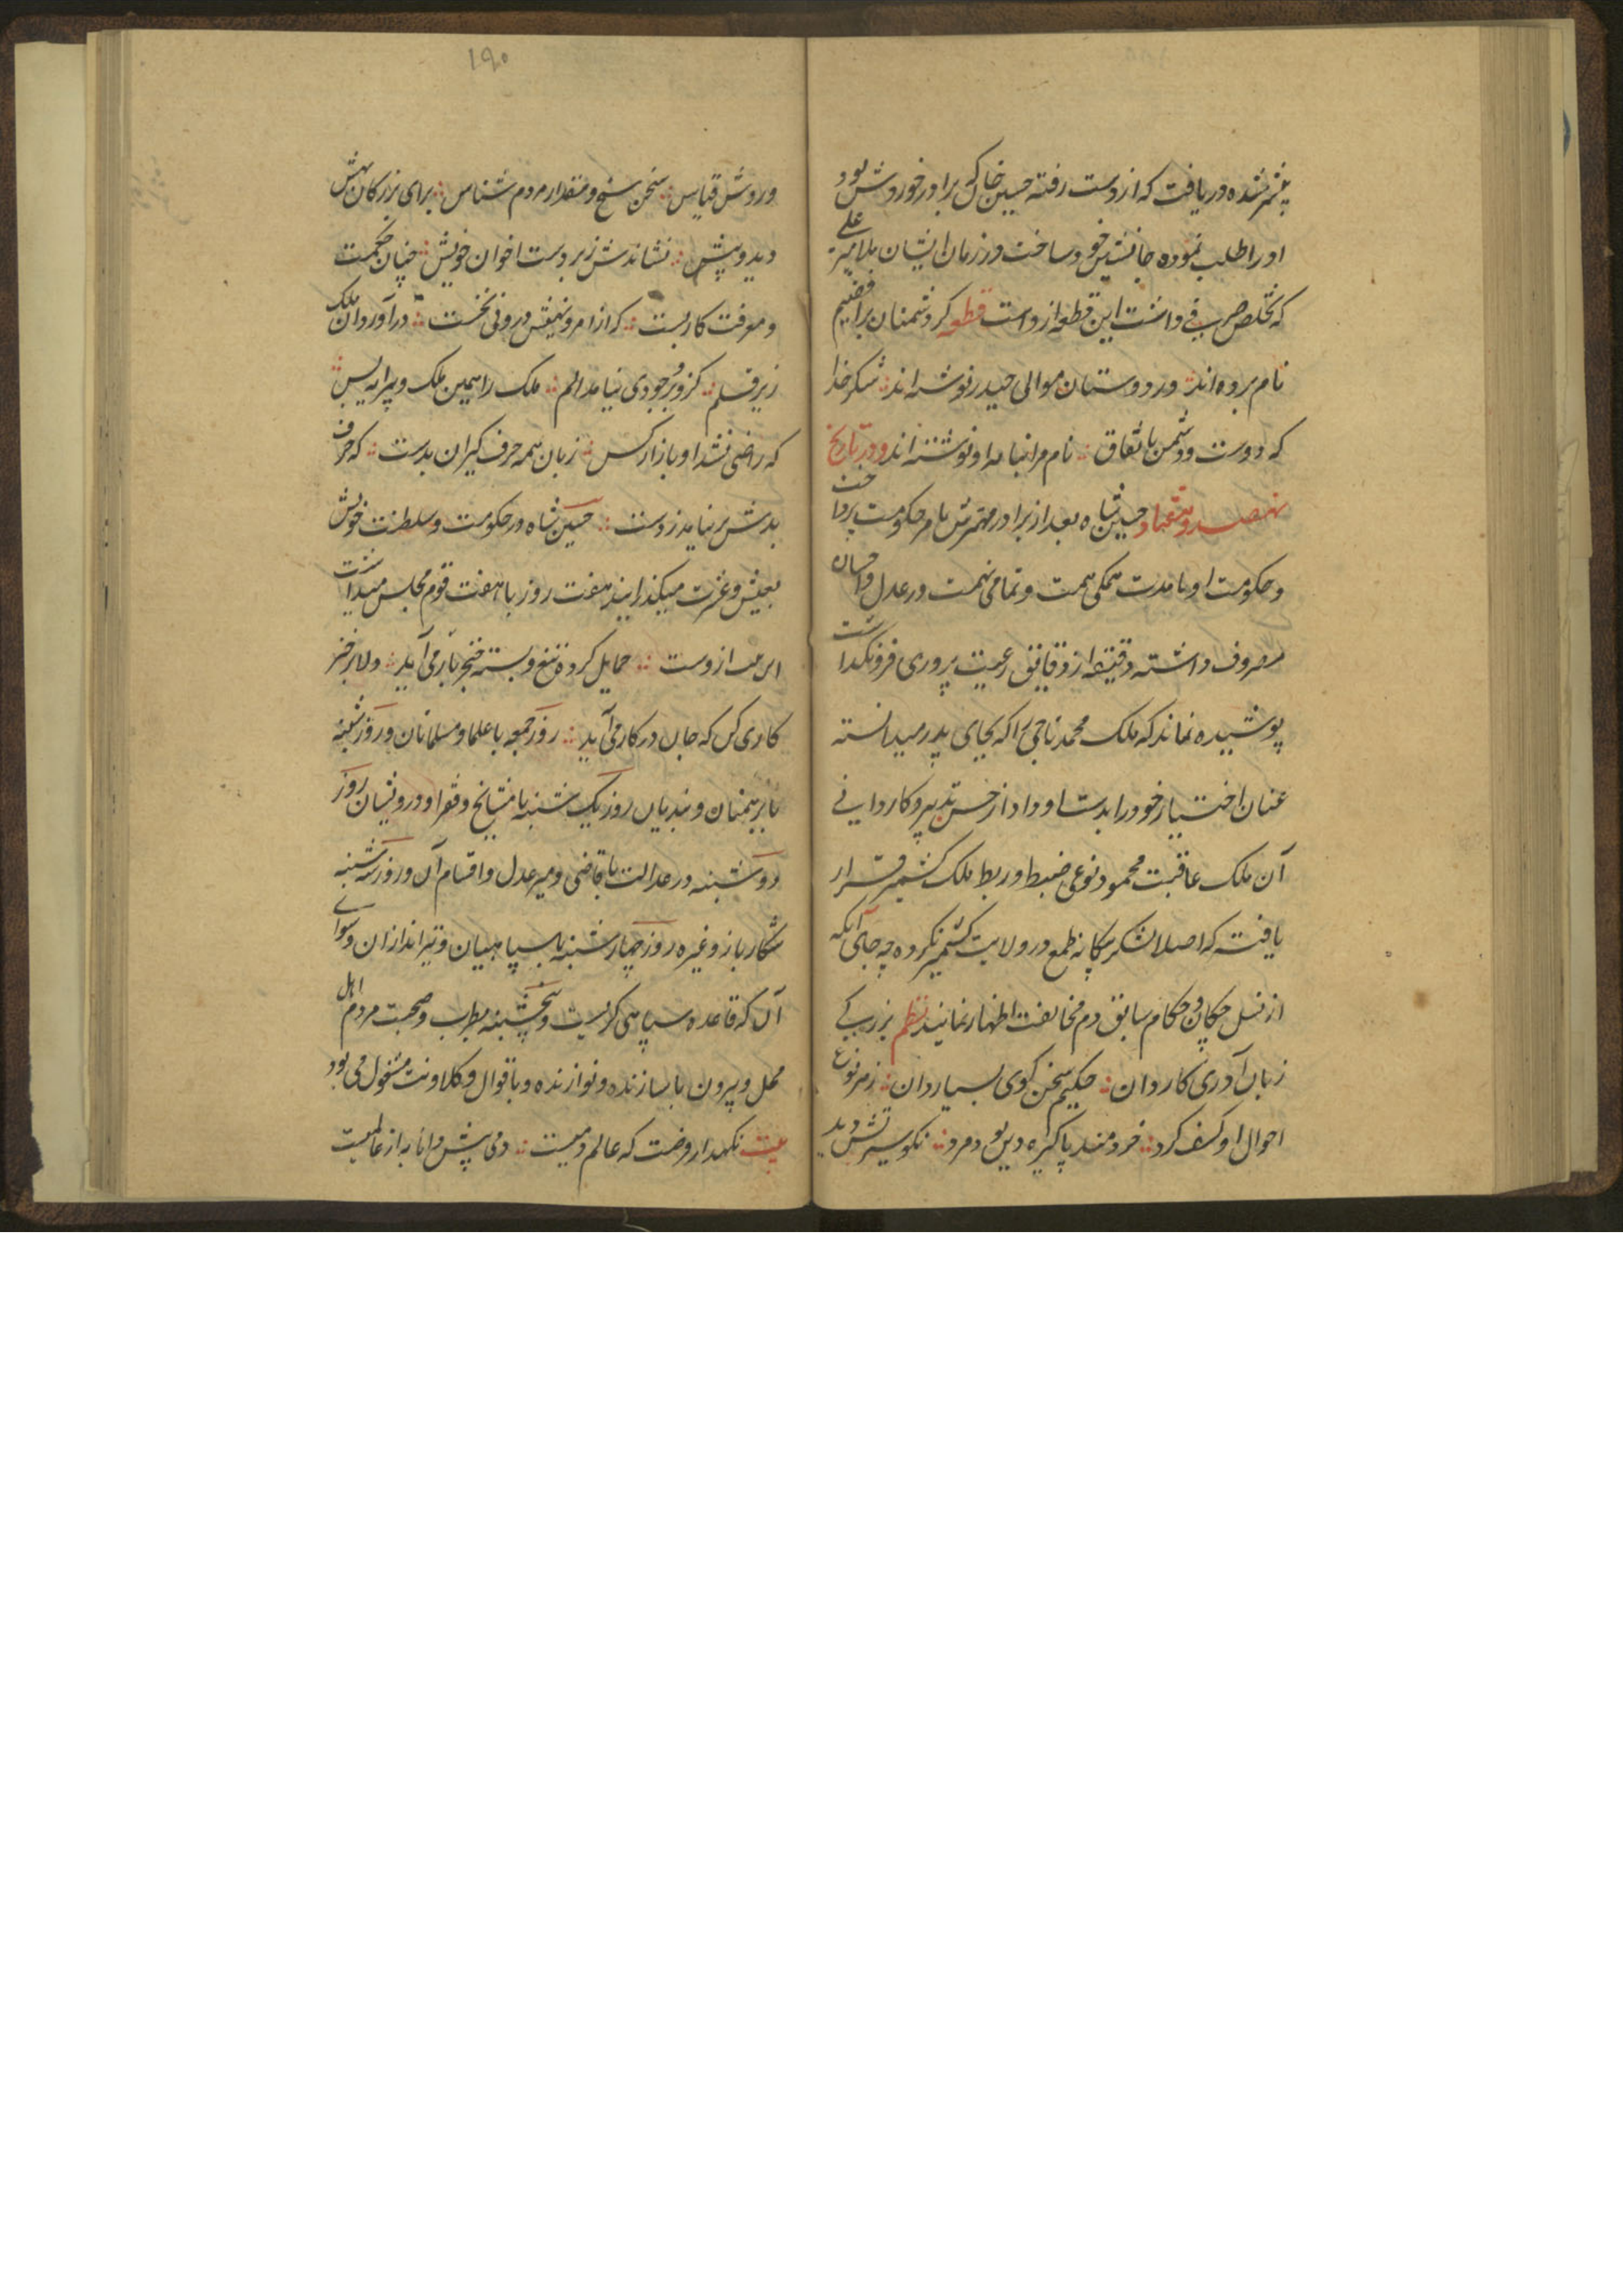 شده دریافت که از دست رفته حسین خان که برادر خوردش بود
او را طلب نموده جانشین خود ساخت و در زمان ایشان ملا میر علی
که تخلص صیرفی داشت این قطعه از دست قطعه کر دشمنان
نام برده اند ور دوستان موالی حیدر نوشته اند شکر خدا
که دوست و دشمن باتفاق نام مرا او نوشته اند و در تاریخ
نهصد و هفتاد حسین شاه بعد از برادر مهترش بامر حکومت پرداخت
و حکومت او بامدت همگی همت و تمامی نهمت در عدل و احسان
مصروف داشته دقیقه از دقایق رعیت پروری فرو نگذاشت
پوشیده نماند که ملک محمد ناجی را که بجای پدر میدانسته
عنان اختیار خود را بدست او داد از حسن تدبیر و کاردانی
آن ملک عاقبت محمود نوعی ضبط و ربط ملک کشمیر قرار
یافت که اصلا لشکر بیگانه طمع در ولایت کشمیر نکرده چه جای آنکه
از نسل چکان و حکام سابق دم مخالفت اظهار نمایند نظم بزرگی
زبان آوری کاردان حکیم سخن گوی بسیاردان زهر نوع
احوال او کشف کرد خردمند پاکیزه دین بود مرد نکو سیرتش دید
۱۹۰
و روشن قیاس سخن سنج و مقدار مردم شناس برای بزرگان بهش
دید و بیش نشاندش زبردست اخوان خویش چنان حکمت
و معرفت کار بست که از امر و نهیش درونی نخست در آورد آن ملک
زیر قلم کزو بر وجودی نیامد الم ملک را همین ملک و پیرایه بس
که راضی نشد او بازار کس زبان همه حرف گیران ببست که حرف
بدش بر نیامد ز دست حسین شاه در حکومت و سلطنت خویش
بعیش و عشرت میگذرانید هفت روز با هفت قوم مجلس میداشت
از وست حمایل کرده تیغ و بسته خنجر یار می آید دلا برخیز
کاری کن که جان در کار می آید روز جمعه با علما و مسلمانان و روز شنبه
با برهمنان و روز یکشنبه با مشایخ و فقرا و درویشان روز
دوشنبه در عدالت با قاضی و میر عدل و اقسام آن و روز سه شنبه
شکار باز و غیره روز چهارشنبه با سپاهیان و تیراندازان و سوای
آن که قاعده سپاهی گریست و پنجشنبه مطرب و صحبت مردم اهل
محل و بیرون با سازنده و نوازنده و با قوال و کلاونت مشغول می بود
بیت نگهدار فرصت که عالم دمیست دمی پیش دانا به از عالمیست